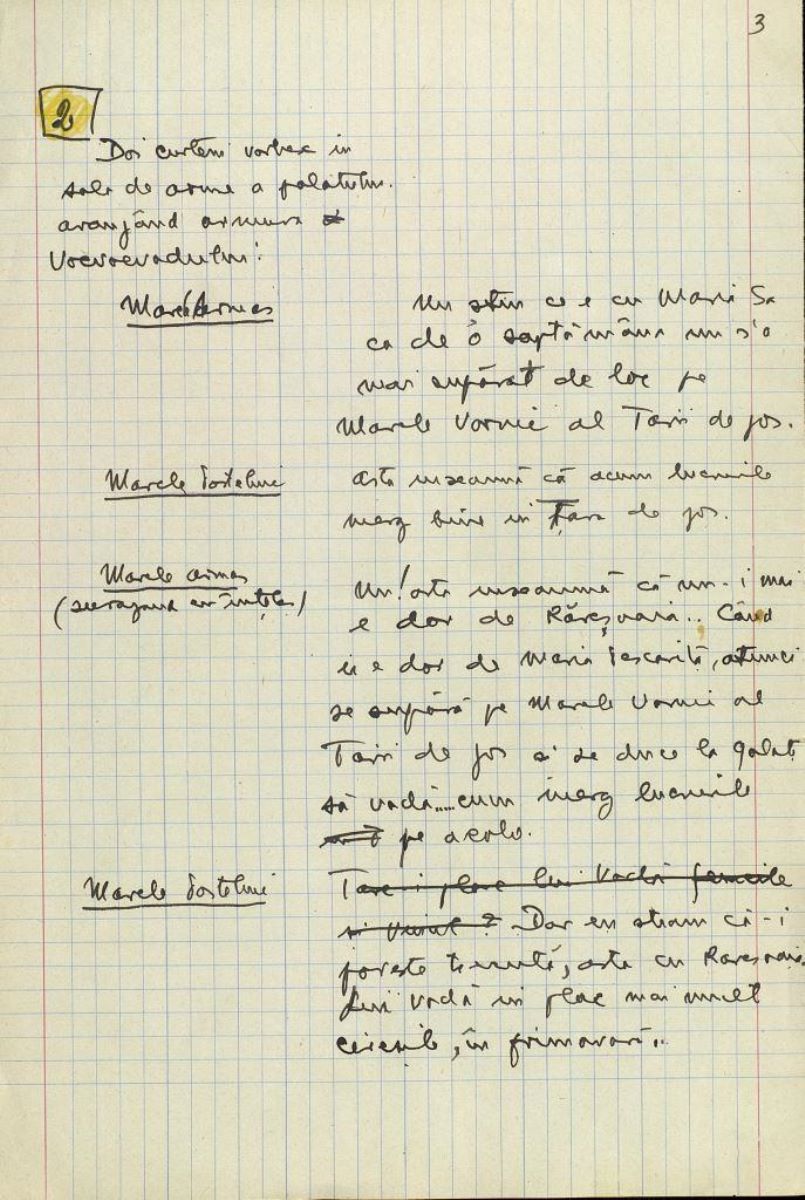 3
2
Doi curteni vorbesc in
sala de arme a palatului.
aranjând armura
Voevoevodului:
Marele Armas
Nu stiu ce e cu Maria Sa
ca de o saptămâna nu s'a
mai supărat de loc pe
Marele Vornic al Tarii de jos.
Marele Postelnic
Asta inseamnă că acum lucrurile
merg bine in Țara de jos.
Marele armas
(surazand cu înțeles)
Nu! asta inseamnă că nu-i mai
e dor de Răreșoaia.. Când
ii e dor de Maria Pescarița, atunci
se supără pe Marele Vornic al
Tarii de jos si se duce la Galați
să vadă.....cum merg lucrurile
pe acolo.
Marele Postelnic
Tare-i place lui Vodă femeile
si vinul? Dar eu stiam că-i
poveste trecută, asta cu Raresoaia.
Lui Vodă ii plac mai mult
cireșile, în primavară..